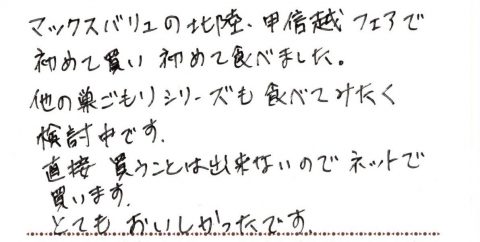 マックスバリュの北陸、甲信越フェアで
初めて買い 初めて食べました。
他の巣ごもりシリーズも食べてみたく
検討中です.
直接 買うことは出来ないのでネットで
買います.
とても おいしかったです.